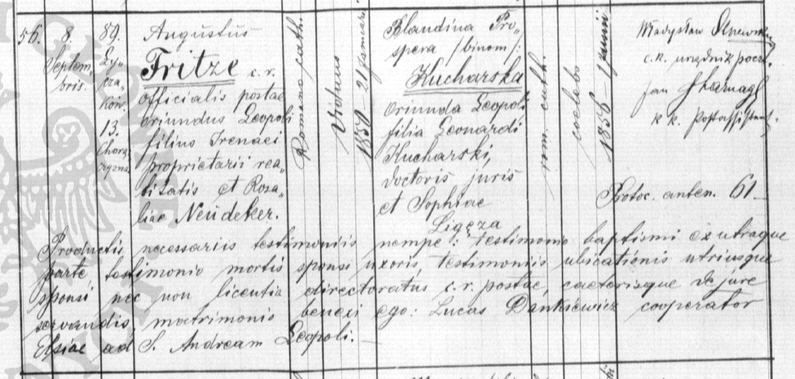 56.
8
Septem
bris.
89.
Zy-
bra-
kow.
13.
Chorąż
czyzna
Augustus
Fritze c. r.
officialis postae
oriundus Leopoli
filius Irenaei
proprietarii rea-
litatis et Rosa-
liae Neudeker.
Romano cath.
Viduus
1850 - 21 januarii
Blandina Pro-
spera /binom/:
Kucharska
oriunda Leopoli
filia Leonardi
Kucharski,
doctoris juris
et Sophiae
Ligęza
rom. cath.
coelebs
1856 - 1 junii
Władysław
c.k. urzędnik poczt.
Jan
k k Postassistent.
Protoc. anten. 61
Productis necessariis testimoniis nempe: testimonio baptismi ex utraque
parte testimonio mortis sponsi uxoris testimoniis ubicationis utriusque
sponsi nec non licentia directoratus c.r. postae, caeterisque de jure
servandis matrimonis benexi ego: Lucas Dankiewicz cooperator
Elsiae ad S. Andream Leopoli.